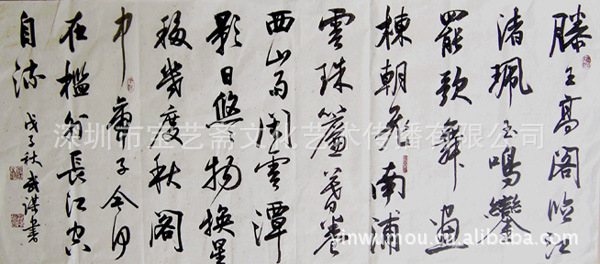 滕王高阁临江
渚珮玉鸣鸾
罷歌舞画
棟朝飞南浦
雲珠簾暮卷
西山雨闲雲潭
影日悠物换星
移幾度秋阁
中帝子今何
在檻外长江空
自流
戊子秋武谋书
深圳市宝艺斋文化艺术传播有限公司
jinwumou.cn.alibaba.com